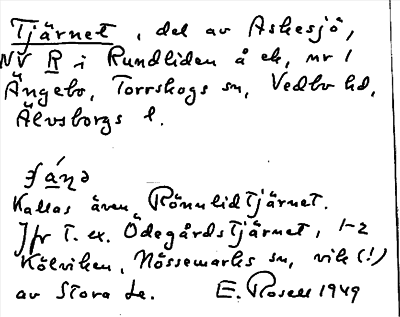 Tjärnet, del av Askesjö,
NV R i Rundliden å ek, nr 1
Ängebo, Torrskogs sn, Vedbo hd,
Älvsborgs l.
Kallas även Rönnlidtjärnet.
Jfr t.ex. Ödegårdstjärnet, 1-2
Kölviken, Nössemarks sn, vik (!)
av Stora Le. E. Rosell 1949